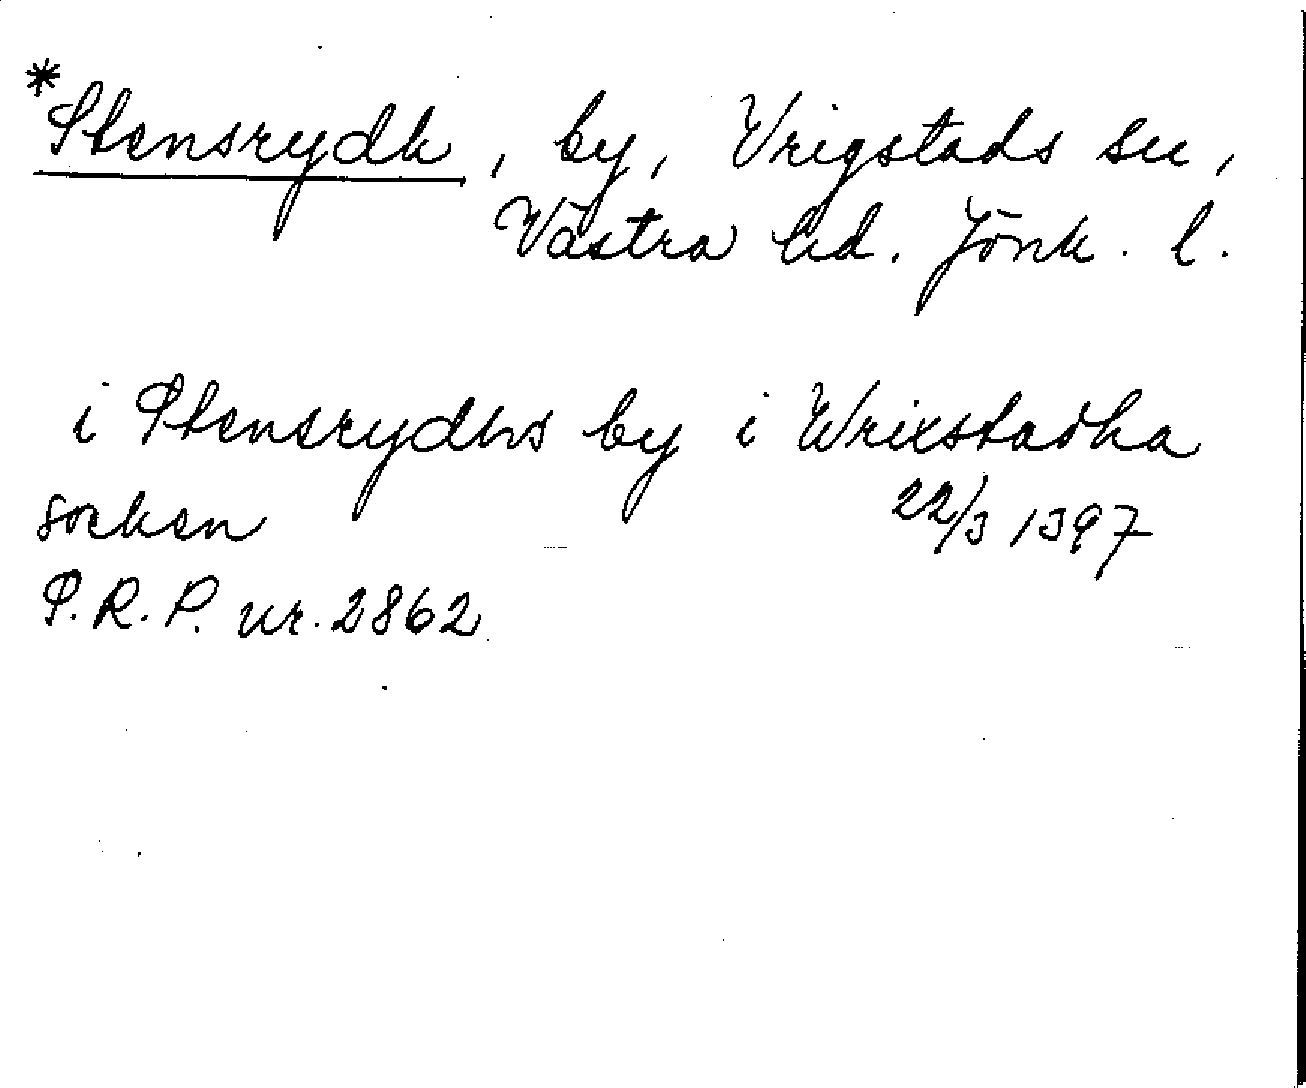 *Stensrydh, by, Vrigstads sn,
Västra hd. Jönk. l.
i Stensrydhs by i Wrixstadha
socken 22/3 1397
S.R.P. nr. 2862